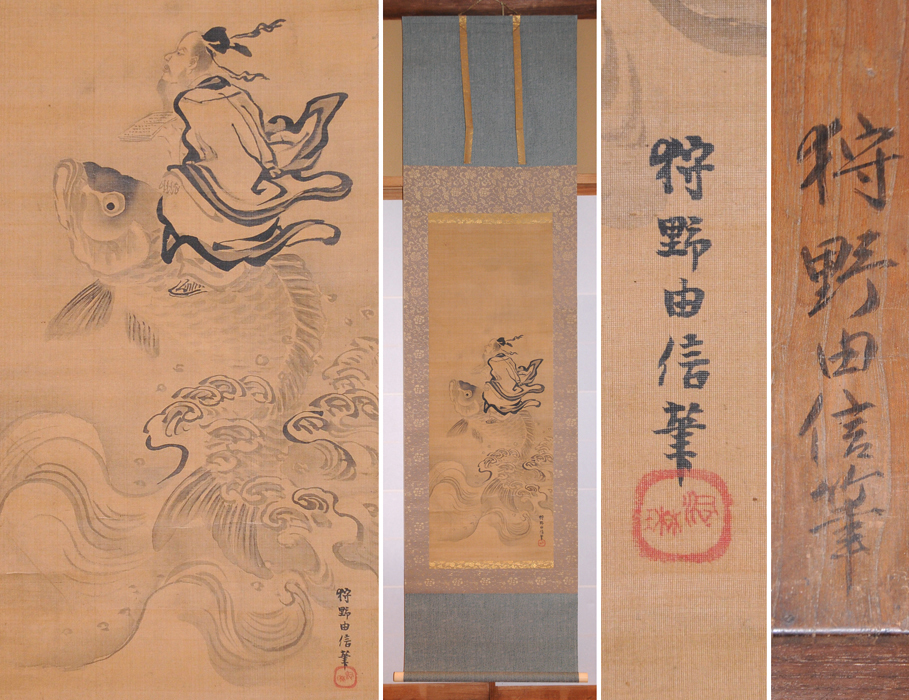 狩野由信筆
狩野由信筆
狩野由信筆
狩野由信筆